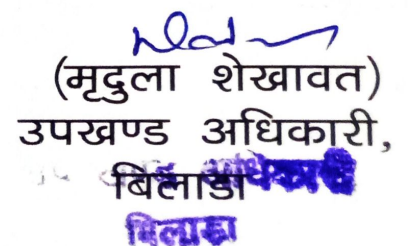 (मृदुला शेखावत)
उपखण्ड अधिकारी,
बिलाडा
अधिकारी
बिलाडा